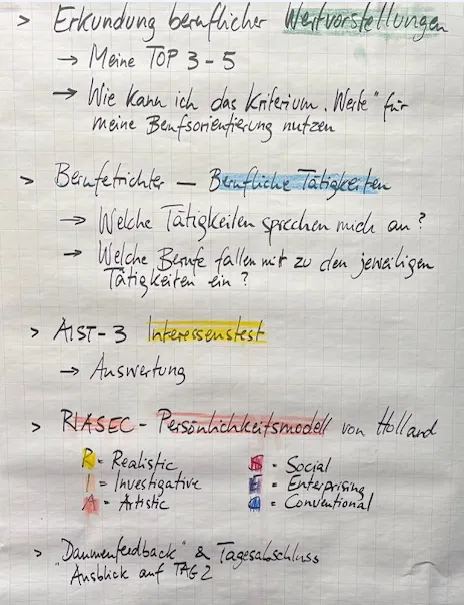 > Erkundung beruflicher Wertvorstellungen
→ Meine TOP 3-5
→ Wie kann ich das Kriterium „Werte" für
meine Berufsorientierung nutzen
> Berufetrichter – Berufliche Tätigkeiten
→ Welche Tätigkeiten sprechen mich an?
→ Welche Berufe fallen mir zu den jeweiligen
Tätigkeiten ein?
> AIST-3 Interessenstest
→ Auswertung
> RIASEC - Persönlichkeitsmodell von Holland
R = Realistic
I = Investigative
A = Artistic
S = Social
E = Enterprising
C = Conventional
> "Daumenfeedback" & Tagesabschluss
Ausblick auf TAG 2